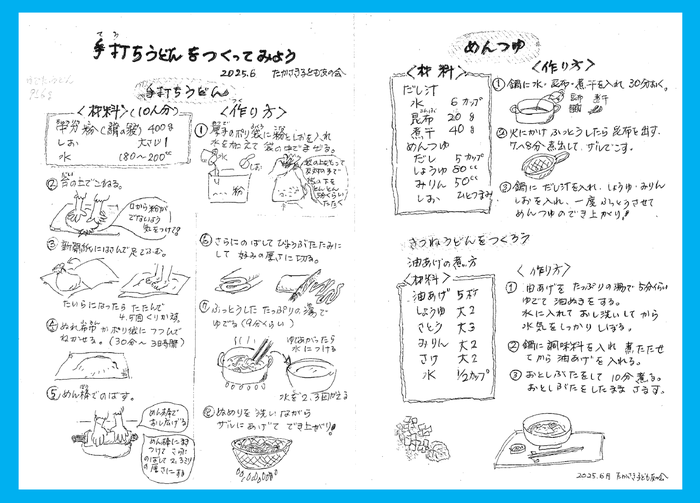 手打ちうどんをつくってみよう
2025.6 たかさき子ども友の会
手打ちうどん
〈材料〉(10人分)
中力粉 400g
しお 大さじ1
水 180〜200cc
〈作り方〉
① 厚手のポリ袋に粉としおを入れ
水を加えて袋の中でまぜる。
水
しお
粉
② 台の上でこねる。
③ 新聞紙にはさんで足でふむ。
たいらになったら たたんで
4.5回くりかえす
④ ぬれ布巾かポリ袋につつんで
ねかせる。(30分〜3時間)
⑤ めん棒でのばす。
めん棒で
おしひろげる
めん棒にまき
つけて さらに
のばして 2.3ミリ
の厚さにする
⑥ さらにのばして びょうぶたたみに
して 好みの厚さに切る。
⑦ ふっとうした たっぷりの湯で
ゆでる(9分くらい)
ゆであがったら
水につける
水を2.3回かえる
⑧ ぬめりを洗いながら
ザルにあげて でき上がり!
めんつゆ
〈材料〉
だし汁
水 6カップ
昆布 20g
煮干 40g
めんつゆ
だし 5カップ
しょうゆ 80cc
みりん 50cc
しお ひとつまみ
〈作り方〉
① 鍋に水・昆布・煮干を入れ 30分おく。
昆布
煮干
② 火にかけ ふっとうしたら 昆布を出す。
7〜8分煮出して、ザルでこす。
③ 鍋に だし汁を入れ、しょうゆ・みりん
しおを入れ、一度ふっとうさせて
めんつゆのでき上がり!
きつねうどんをつくろう
油あげの煮方
〈材料〉
油あげ 5枚
しょうゆ 大2
さとう 大3
みりん 大2
さけ 大2
水 1/2カップ
〈作り方〉
① 油あげを たっぷりの湯で 5分くらい
ゆでて 油ぬきをする。
水に入れて おし洗いしてから
水気をしっかりしぼる。
② 鍋に調味料を入れ 煮たたせ
てから 油あげを入れる。
③ おとしぶたをして 10分煮る。
おとしぶたをしたまま さます。
2025.6月 たかさき子ども友の会